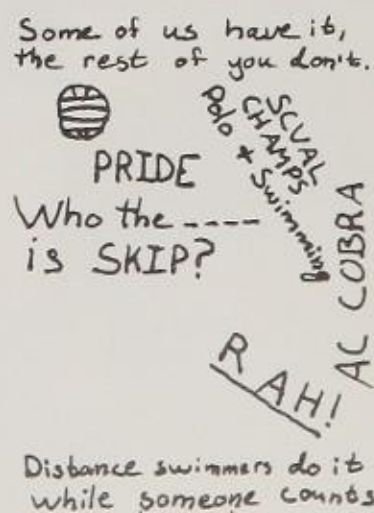 Some of us have it,
the rest of you don't.
PRIDE
SCVAL
CHAMPS
Polo + Swimming
Who the ----
is SKIP?
AC COBRA
RAH!
Distance swimmers do it
while someone counts